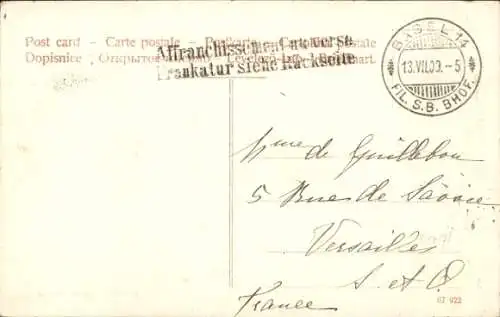 Post card – Carte postale – Postkarte – Cartolina postale
Dopisnice Открытое Levelező-Lap
Affranchissement au verso
Frankatur siehe Rückseite
BASEL 14
13.VII.09.-5
FIL. S.B. BHOF.
Mme de Guillebon
5 Rue de Savoie
Versailles
S. et O.
France
67 922